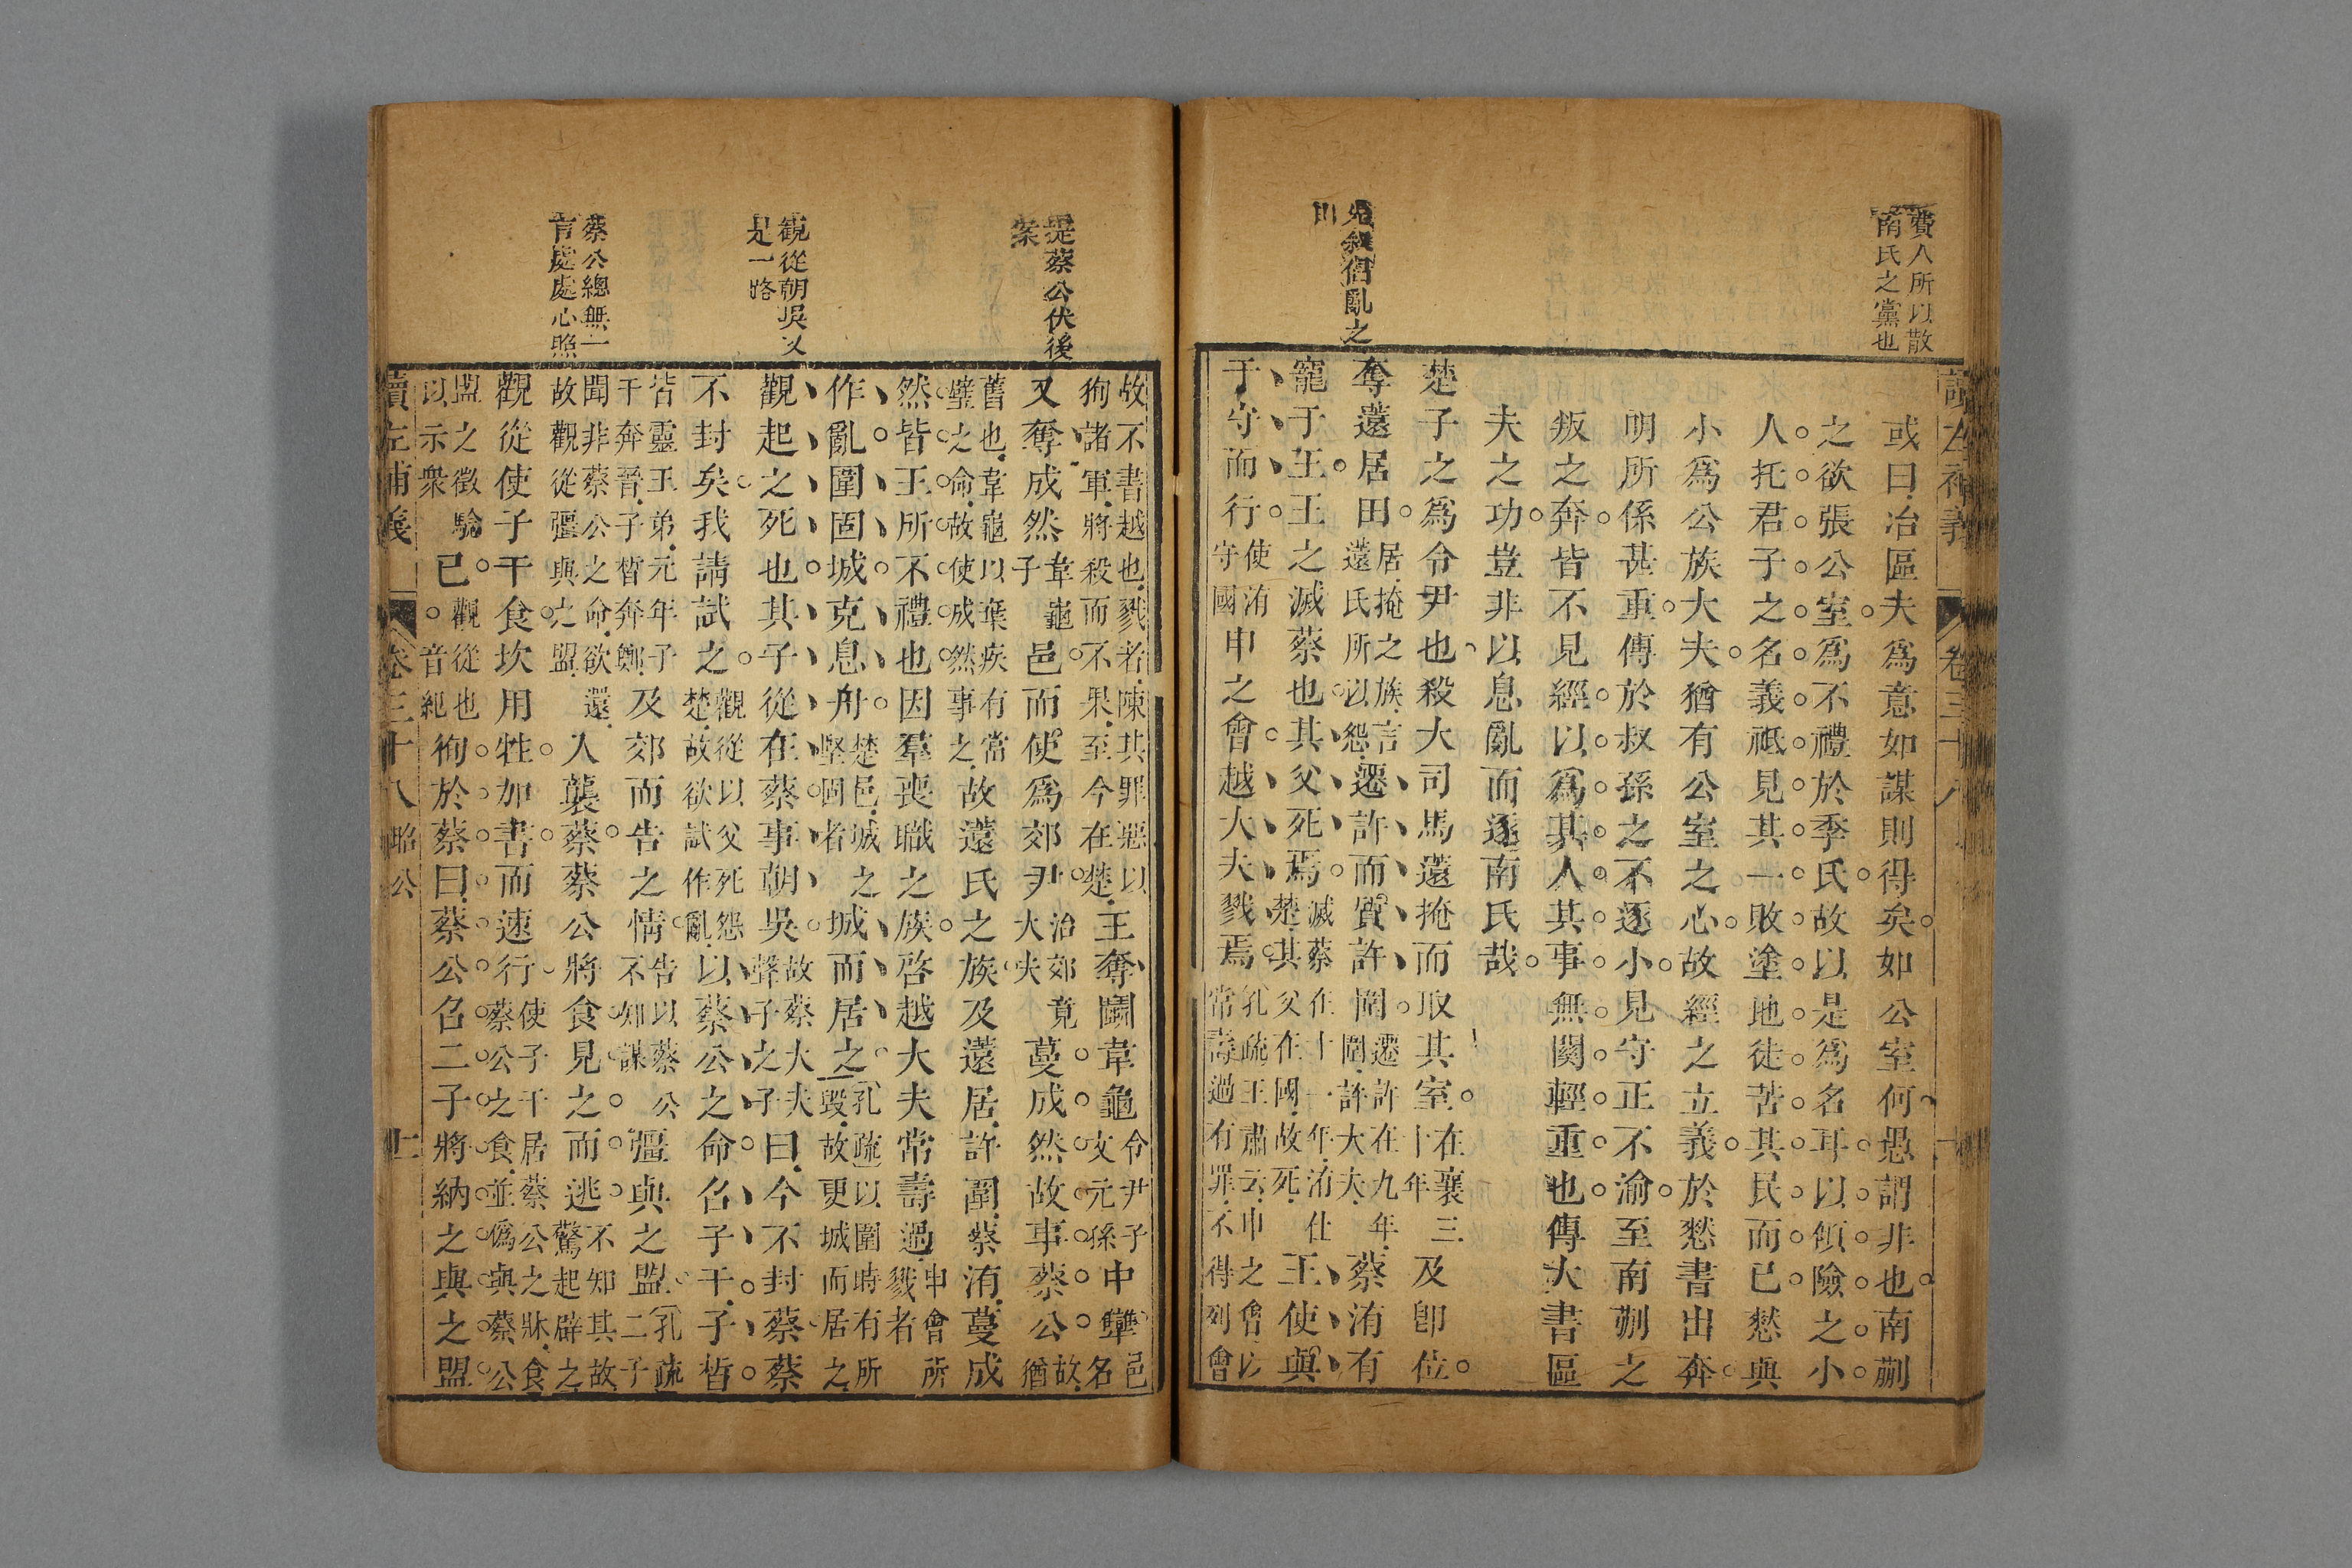 費人所以散
南氏之黨也
讀左補義 卷三十八
或曰冶區夫爲意如謀則得矣如公室何愚謂非也南蒯
之欲張公室爲不禮於季氏故以是爲名耳以傾險之小
人托君子之名義祇見其一敗塗地徒苦其民而已憖與
小爲公族大夫猶有公室之心故經之立義於憖書出奔
明所係甚重傳於叔孫之不逐小見守正不渝至南蒯之
叛之奔皆不見經以爲其人其事無関輕重也傳大書區
夫之功豈非以息亂而逐南氏哉
先叙倡亂之
楚子之爲令尹也殺大司馬薳掩而取其室在襄三十年及卽位
奪薳居田居掩之族言薳氏所以怨遷許而質許圍遷許在九年圍許大夫蔡洧有
寵于王王之滅蔡也其父死焉滅蔡在十一年洧仕楚其父在國故死王使與
于守而行使洧守國申之會越大夫戮焉孔疏王肅云申之會以常壽過有罪不得列會
提蔡公伏後
案
觀從朝吳又
是一路
蔡公總無一
言處處心照
故不書越也戮者陳其罪惡以徇諸軍將殺而不果至今在楚王奪鬭韋龜令尹子文元孫中犫邑名
又奪成然韋龜子邑而使爲郊尹治郊竟大夫蔓成然故事蔡公故猶
舊也韋龜以棄疾有當璧之命故使成然事之故薳氏之族及薳居許圍蔡洧蔓成
然皆王所不禮也因羣喪職之族啓越大夫常壽過申會所戮者
作亂圍固城克息舟楚邑城之堅固者城而居之孔疏以圍時有所毀故更城而居之
觀起之死也其子從在蔡事朝吳故蔡大夫聲子之子曰今不封蔡蔡
不封矣我請試之觀從以父死怨楚故欲試作亂以蔡公之命召子干子晳
皆靈王弟元年子干奔晉子晳奔鄭及郊而告之情告以蔡公不知謀彊與之盟孔疏二子
聞非蔡公之命欲還故觀從彊與之盟入襲蔡蔡公將食見之而逃不知其故驚起辟之
觀從使子干食坎用牲加書而速行使子干居蔡公之牀食蔡公之食並僞與蔡公
盟之徵驗以示衆己觀從也音紀徇於蔡曰蔡公召二子將納之與之盟
讀左補義 卷三十八 昭公